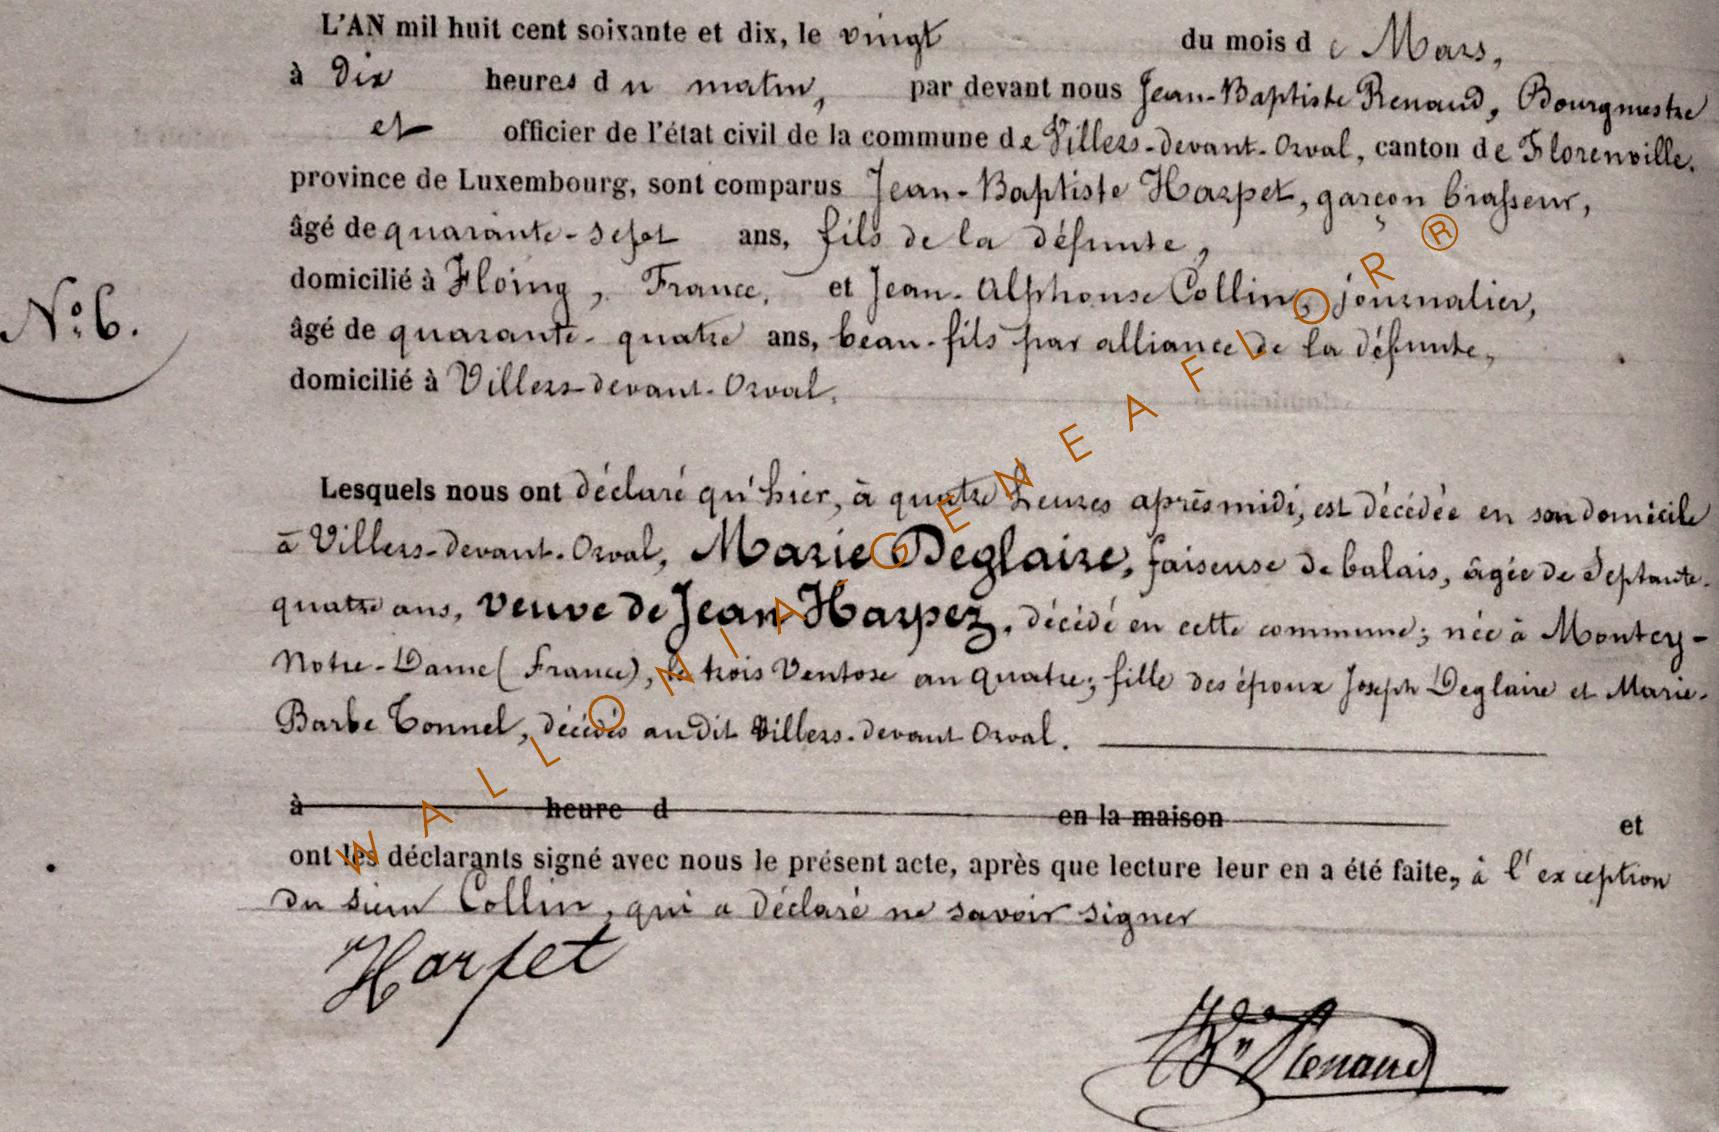 L'AN mil huit cent soixante et dix, le vingt du mois de Mars,
à Dix heures du matin, par devant nous Jean-Baptiste Renaud, Bourgmestre
et officier de l'état civil de la commune de Villers-devant-Orval, canton de Florenville,
province de Luxembourg, sont comparus Jean-Baptiste Harpet, garçon brasseur,
âgé de quarante-sept ans, fils de la défunte,
domicilié à Floing, France, et Jean-Alphonse Collin, journalier,
N° 6.
âgé de quarante-quatre ans, beau-fils par alliance de la défunte,
domicilié à Villers-devant-Orval.
Lesquels nous ont déclaré qu'hier, à quatre heures après midi, est décédée en son domicile
à Villers-devant-Orval, Marie Deglaire, faiseuse de balais, âgée de Septante-
quatre ans, veuve de Jean Harpez, décédé en cette commune; née à Montcy-
Notre-Dame (France), le trois Ventose an quatre; fille des époux Joseph Deglaire et Marie-
Barbe Tonnel, décédés audit Villers-devant Orval.
à heure d en la maison et
ont les déclarants signé avec nous le présent acte, après que lecture leur en a été faite, à l'exception
du sieur Collin, qui a déclaré ne savoir signer
Harpet
Renaud
WALLONIA-GENEAFLOR®